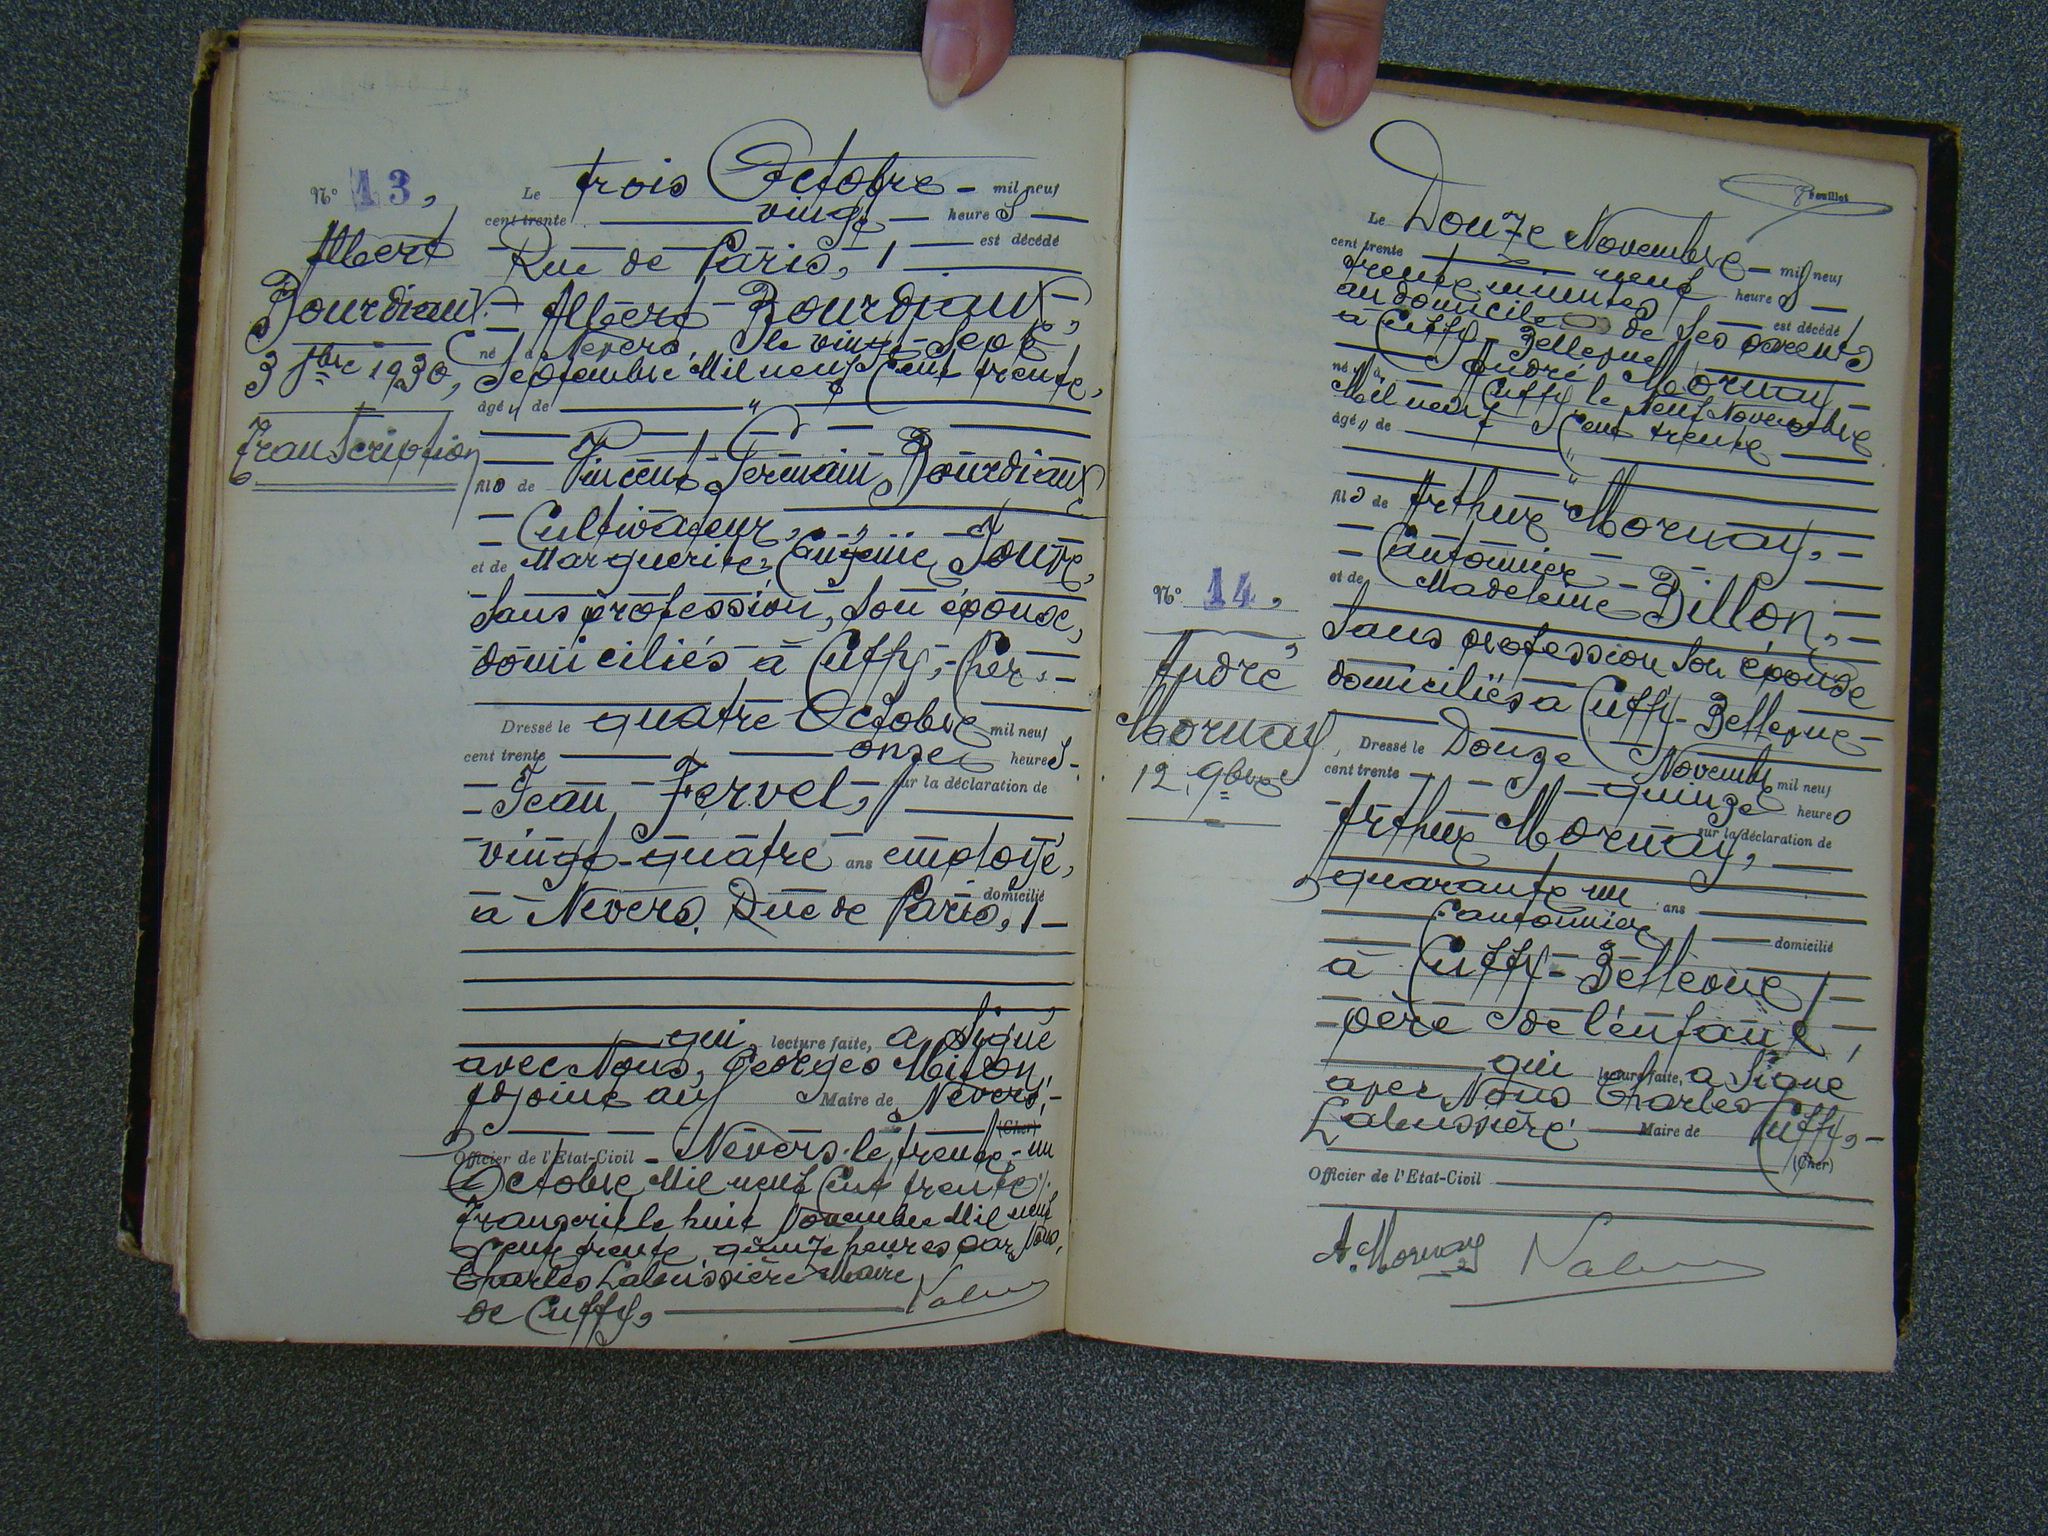 N° 13,
Albert
Bourdiaux
3 1930,
Transcription
Le trois Octobre - mil neuf
cent trente vingt - heures
Rue de Paris, 1 est décédé
Albert Bourdiaux,
né à Nevers, le vingt-sept
Septembre Mil neuf Cent trente,
âgé de "
fils de Vincent Germain Bourdiaux
Cultivateur,
et de Marguerite, Eugénie
Sans profession, son épouse,
domiciliés à Cuffy, Cher.
Dressé le quatre Octobre mil neuf
cent trente onze heures
Jean Fervel, sur la déclaration de
vingt-quatre ans employé,
domicilié
à Nevers. Rue de Paris, 1
qui, lecture faite, a Signé
avec Nous, Georges Milon,
adjoint au Maire de Nevers,
(Cher)
Officier de l'Etat-Civil - Nevers. le trente-un
Octobre Mil neuf Cent trente
Transcrit le huit Novembre Mil neuf
Cent trente quinze heures par Nous,
Charles Labussière Maire
de Cuffy,
Feuillet
Le Douze Novembre - mil neuf
cent trente neuf heures
trente minutes est décédé
au domicile de ses parents
à Cuffy Bellevue
André Mornay
né à Cuffy le Neuf Novembre
Mil neuf Cent trente
âgé de "
fils de Arthur Mornay,
Cantonnier
et de Madeleine Billon,
Sans profession son épouse
domiciliés à Cuffy-Bellevue
N° 14,
André
Mornay
12 9bre
Dressé le Douze Novembre mil neuf
cent trente quinze heures
sur la déclaration de
Arthur Mornay,
quarante un ans
Cantonnier domicilié
à Cuffy-Bellevue
père de l'enfant,
qui lecture faite, a Signé
avec Nous Charles
Labussière Maire de Cuffy,
(Cher)
Officier de l'Etat-Civil
A. Mornay